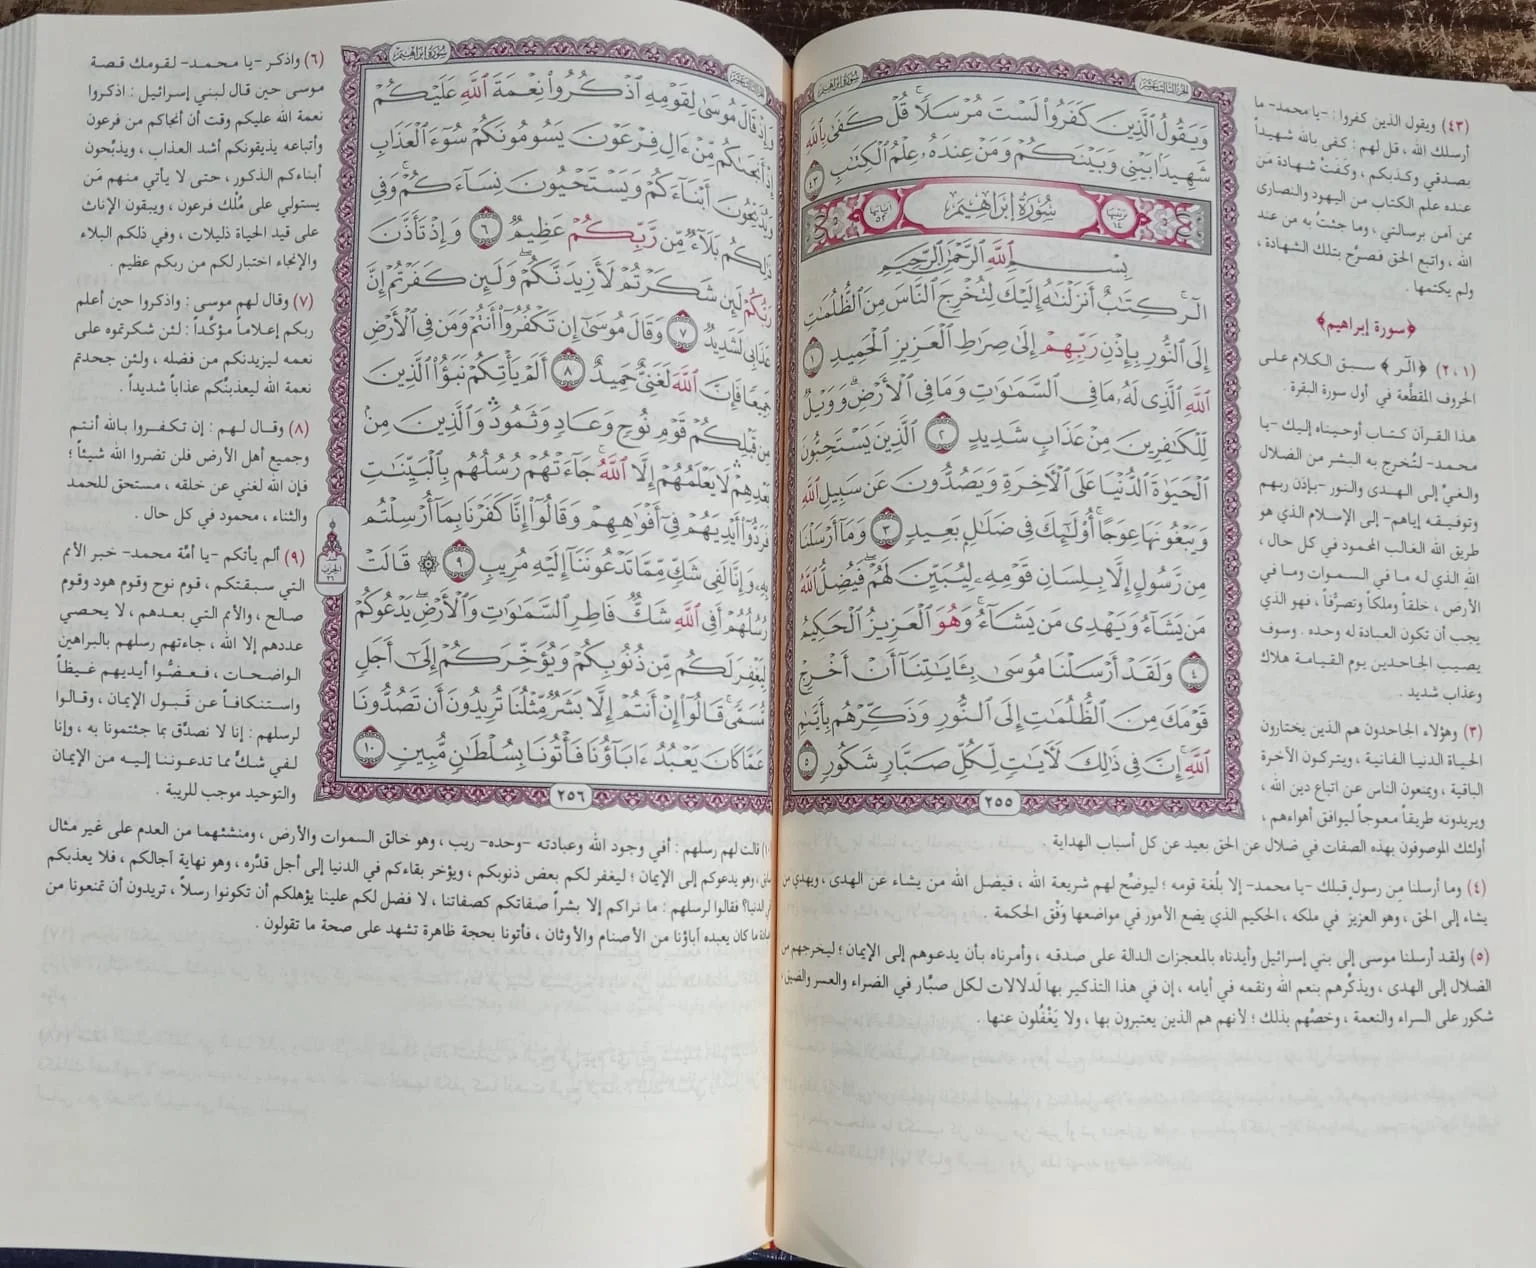 الجزء الثالث عشر
سورة إبراهيم
وَيَقُولُ الَّذِينَ كَفَرُوا لَسْتَ مُرْسَلًا ۚ قُلْ كَفَىٰ بِاللَّهِ
شَهِيدًا بَيْنِي وَبَيْنَكُمْ وَمَنْ عِنْدَهُ عِلْمُ الْكِتَابِ ٤٣
ترتيبها ١٤ سُورَةُ إِبْرَاهِيمَ آياتها ٥٢
بِسْمِ اللَّهِ الرَّحْمَٰنِ الرَّحِيمِ
الر ۚ كِتَابٌ أَنْزَلْنَاهُ إِلَيْكَ لِتُخْرِجَ النَّاسَ مِنَ الظُّلُمَاتِ
إِلَى النُّورِ بِإِذْنِ رَبِّهِمْ إِلَىٰ صِرَاطِ الْعَزِيزِ الْحَمِيدِ ١
اللَّهِ الَّذِي لَهُ مَا فِي السَّمَاوَاتِ وَمَا فِي الْأَرْضِ ۗ وَوَيْلٌ
لِلْكَافِرِينَ مِنْ عَذَابٍ شَدِيدٍ ٢ الَّذِينَ يَسْتَحِبُّونَ
الْحَيَاةَ الدُّنْيَا عَلَى الْآخِرَةِ وَيَصُدُّونَ عَنْ سَبِيلِ اللَّهِ
وَيَبْغُونَهَا عِوَجًا ۚ أُولَٰئِكَ فِي ضَلَالٍ بَعِيدٍ ٣ وَمَا أَرْسَلْنَا
مِنْ رَسُولٍ إِلَّا بِلِسَانِ قَوْمِهِ لِيُبَيِّنَ لَهُمْ ۖ فَيُضِلُّ اللَّهُ
مَنْ يَشَاءُ وَيَهْدِي مَنْ يَشَاءُ ۚ وَهُوَ الْعَزِيزُ الْحَكِيمُ
٤ وَلَقَدْ أَرْسَلْنَا مُوسَىٰ بِآيَاتِنَا أَنْ أَخْرِجْ
قَوْمَكَ مِنَ الظُّلُمَاتِ إِلَى النُّورِ وَذَكِّرْهُمْ بِأَيَّامِ
اللَّهِ ۚ إِنَّ فِي ذَٰلِكَ لَآيَاتٍ لِكُلِّ صَبَّارٍ شَكُورٍ ٥
٢٥٥
(٤٣) ويقول الذين كفروا : -يا محمد- ما
أرسلك الله ، قل لهم : كفى بالله شهيداً
بصدقي وكذبكم ، وكَفَتْ شهادة مَن
عنده علم الكتاب من اليهود والنصارى
ممن آمن برسالتي ، وما جئتُ به من عند
الله ، واتبع الحق فصرَّح بتلك الشهادة ،
ولم يكتمها .
﴿سورة إبراهيم﴾
(١ ، ٢) ﴿ الٓر ﴾ سبق الكلام على
الحروف المقطَّعة في أول سورة البقرة .
هذا القرآن كتاب أوحيناه إليك -يا
محمد- لتُخرج به البشر من الضلال
والغيِّ إلى الهدى والنور -بإذن ربهم
وتوفيقه إياهم- إلى الإسلام الذي هو
طريق الله الغالب المحمود في كل حال ،
اللهِ الذي له ما في السموات وما في
الأرض ، خلقاً وملكاً وتصرُّفاً ، فهو الذي
يجب أن تكون العبادة له وحده . وسوف
يصيب الجاحدين يوم القيامة هلاك
وعذاب شديد .
(٣) وهؤلاء الجاحدون هم الذين يختارون
الحياة الدنيا الفانية ، ويتركون الآخرة
الباقية ، ويمنعون الناس عن اتباع دين الله ،
ويريدونه طريقاً معوجاً ليوافق أهواءهم ،
أولئك الموصوفون بهذه الصفات في ضلال عن الحق بعيد عن كل أسباب الهداية .
(٤) وما أرسلنا مِن رسولٍ قبلك -يا محمد- إلا بلُغة قومه ؛ ليوضِّح لهم شريعة الله ، فيضل الله من يشاء عن الهدى ، ويهدي من
يشاء إلى الحق ، وهو العزيز في ملكه ، الحكيم الذي يضع الأمور في مواضعها وَفْق الحكمة .
(٥) ولقد أرسلنا موسى إلى بني إسرائيل وأيدناه بالمعجزات الدالة على صدقه ، وأمرناه بأن يدعوهم إلى الإيمان ؛ ليخرجهم من
الضلال إلى الهدى ، ويذكِّرهم بنعم الله ونقمه في أيامه ، إن في هذا التذكير بها لَدلالات لكل صبَّار في الضراء والعسر والضيق ،
شكور على السراء والنعمة ، وخصَّهم بذلك ؛ لأنهم هم الذين يعتبرون بها ، ولا يَغْفُلون عنها .
الجزء الثالث عشر
سورة إبراهيم
وَإِذْ قَالَ مُوسَىٰ لِقَوْمِهِ اذْكُرُوا نِعْمَةَ اللَّهِ عَلَيْكُمْ
إِذْ أَنْجَاكُمْ مِنْ آلِ فِرْعَوْنَ يَسُومُونَكُمْ سُوءَ الْعَذَابِ
وَيُذَبِّحُونَ أَبْنَاءَكُمْ وَيَسْتَحْيُونَ نِسَاءَكُمْ ۚ وَفِي
ذَٰلِكُمْ بَلَاءٌ مِنْ رَبِّكُمْ عَظِيمٌ ٦ وَإِذْ تَأَذَّنَ
رَبُّكُمْ لَئِنْ شَكَرْتُمْ لَأَزِيدَنَّكُمْ ۖ وَلَئِنْ كَفَرْتُمْ إِنَّ
عَذَابِي لَشَدِيدٌ ٧ وَقَالَ مُوسَىٰ إِنْ تَكْفُرُوا أَنْتُمْ وَمَنْ فِي الْأَرْضِ
جَمِيعًا فَإِنَّ اللَّهَ لَغَنِيٌّ حَمِيدٌ ٨ أَلَمْ يَأْتِكُمْ نَبَأُ الَّذِينَ
مِنْ قَبْلِكُمْ قَوْمِ نُوحٍ وَعَادٍ وَثَمُودَ ۛ وَالَّذِينَ مِنْ
بَعْدِهِمْ ۛ لَا يَعْلَمُهُمْ إِلَّا اللَّهُ ۚ جَاءَتْهُمْ رُسُلُهُمْ بِالْبَيِّنَاتِ
فَرَدُّوا أَيْدِيَهُمْ فِي أَفْوَاهِهِمْ وَقَالُوا إِنَّا كَفَرْنَا بِمَا أُرْسِلْتُمْ
بِهِ وَإِنَّا لَفِي شَكٍّ مِمَّا تَدْعُونَنَا إِلَيْهِ مُرِيبٍ ٩ ۞ قَالَتْ
رُسُلُهُمْ أَفِي اللَّهِ شَكٌّ فَاطِرِ السَّمَاوَاتِ وَالْأَرْضِ ۖ يَدْعُوكُمْ
لِيَغْفِرَ لَكُمْ مِنْ ذُنُوبِكُمْ وَيُؤَخِّرَكُمْ إِلَىٰ أَجَلٍ
مُسَمًّى ۚ قَالُوا إِنْ أَنْتُمْ إِلَّا بَشَرٌ مِثْلُنَا تُرِيدُونَ أَنْ تَصُدُّونَا
عَمَّا كَانَ يَعْبُدُ آبَاؤُنَا فَأْتُونَا بِسُلْطَانٍ مُبِينٍ ١٠
الحزب ٢٦
٢٥٦
(٦) واذكر -يا محمد- لقومك قصة
موسى حين قال لبني إسرائيل : اذكروا
نعمة الله عليكم وقت أن أنجاكم من فرعون
وأتباعه يذيقونكم أشد العذاب ، ويذبِّحون
أبناءكم الذكور ، حتى لا يأتي منهم مَن
يستولي على مُلْك فرعون ، ويبقون الإناث
على قيد الحياة ذليلات ، وفي ذلكم البلاء
والإنجاء اختبار لكم من ربكم عظيم .
(٧) وقال لهم موسى : واذكروا حين أعلم
ربكم إعلاماً مؤكَّداً : لئن شكرتموه على
نعمه ليزيدنكم من فضله ، ولئن جحدتم
نعمة الله ليعذبنَّكم عذاباً شديداً .
(٨) وقال لهم : إن تكفروا بالله أنتم
وجميع أهل الأرض فلن تضروا الله شيئاً ؛
فإن الله لغني عن خلقه ، مستحق للحمد
والثناء ، محمود في كل حال .
(٩) ألم يأتكم -يا أمَّة محمد- خبر الأمم
التي سبقتكم ، قوم نوح وقوم هود وقوم
صالح ، والأمم التي بعدهم ، لا يحصي
عددهم إلا الله ، جاءتهم رسلهم بالبراهين
الواضحات ، فعضُّوا أيديهم غيظاً
واستنكافاً عن قَبول الإيمان ، وقالوا
لرسلهم : إنا لا نصدِّق بما جئتمونا به ، وإنا
لفي شكٍّ مما تدعوننا إليه من الإيمان
والتوحيد موجب للريبة .
(١٠) قالت لهم رسلهم : أفي وجود الله وعبادته -وحده- ريب ، وهو خالق السموات والأرض ، ومنشئهما من العدم على غير مثال
سابق ، وهو يدعوكم إلى الإيمان ؛ ليغفر لكم بعض ذنوبكم ، ويؤخر بقاءكم في الدنيا إلى أجل قدَّره ، وهو نهاية آجالكم ، فلا يعذبكم
في الدنيا؟ فقالوا لرسلهم : ما نراكم إلا بشراً صفاتكم كصفاتنا ، لا فضل لكم علينا يؤهلكم أن تكونوا رسلاً ، تريدون أن تمنعونا من
عبادة ما كان يعبده آباؤنا من الأصنام والأوثان ، فأتونا بحجة ظاهرة تشهد على صحة ما تقولون .